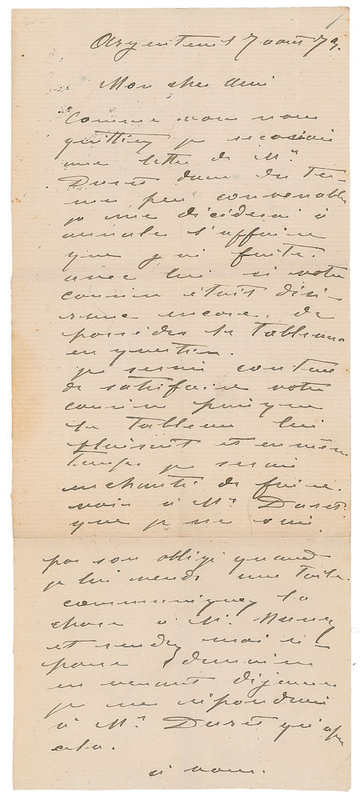 Argenteuil 7 aout 73.
Mon cher ami
Comme vous nous
quittiez je recevais
une lettre de Mr
Duret dans des ter-
mes peu convenables
je me déciderai à
annuler l'affaire
que j'ai faite.
avec lui si votre
cousin était dési-
reux encore de
posséder le tableau
en question.
je serais content
de satisfaire votre
cousin puisque
le tableau lui
plaisait et en même
temps je serais
enchanté de faire
voir à Mr Duret
que je ne suis
pas son obligé quand
je lui vends une toile.
communiquez la
chose à M.
et rendez moi ré-
ponse demain
en venant dejeuner
je ne répondrai
à Mr Duret qu'après
cela.
à vous.